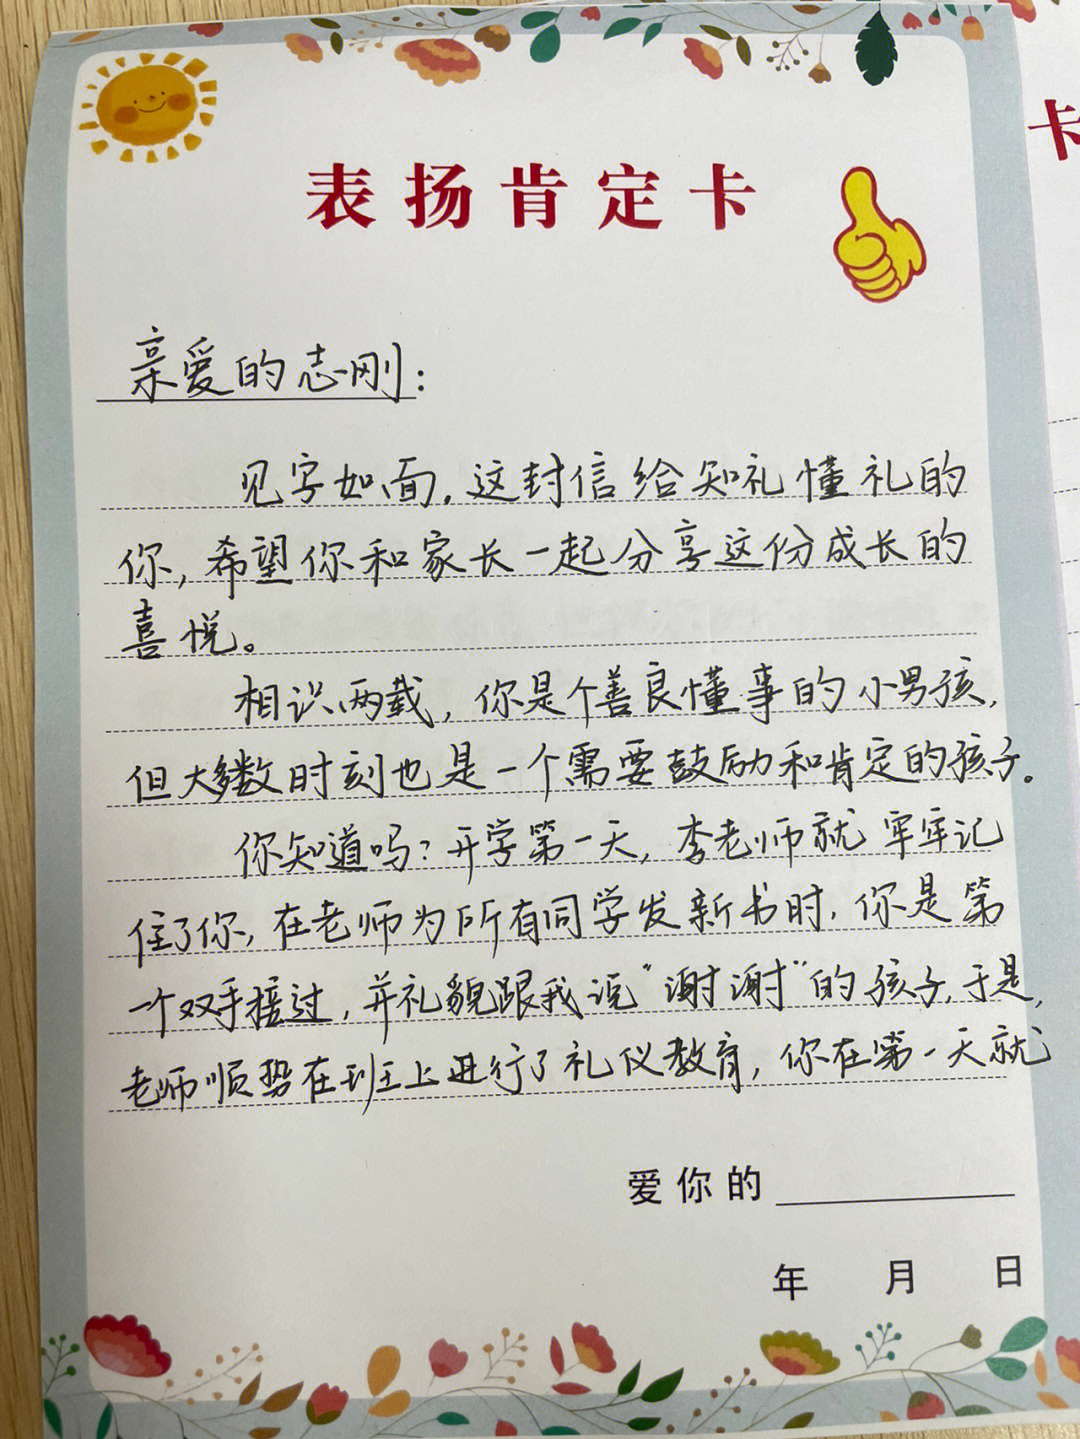 表扬肯定卡
卡
亲爱的志刚：
见字如面，这封信给知礼懂礼的
你，希望你和家长一起分享这份成长的
喜悦。
相识两载，你是个善良懂事的小男孩，
但大多数时刻也是一个需要鼓励和肯定的孩子。
你知道吗？开学第一天，李老师就牢牢记
住了你，在老师为所有同学发新书时，你是第
一个双手接过，并礼貌跟我说“谢谢”的孩子，于是，
老师顺势在班上进行了礼仪教育，你在第一天就
爱你的
年 月 日